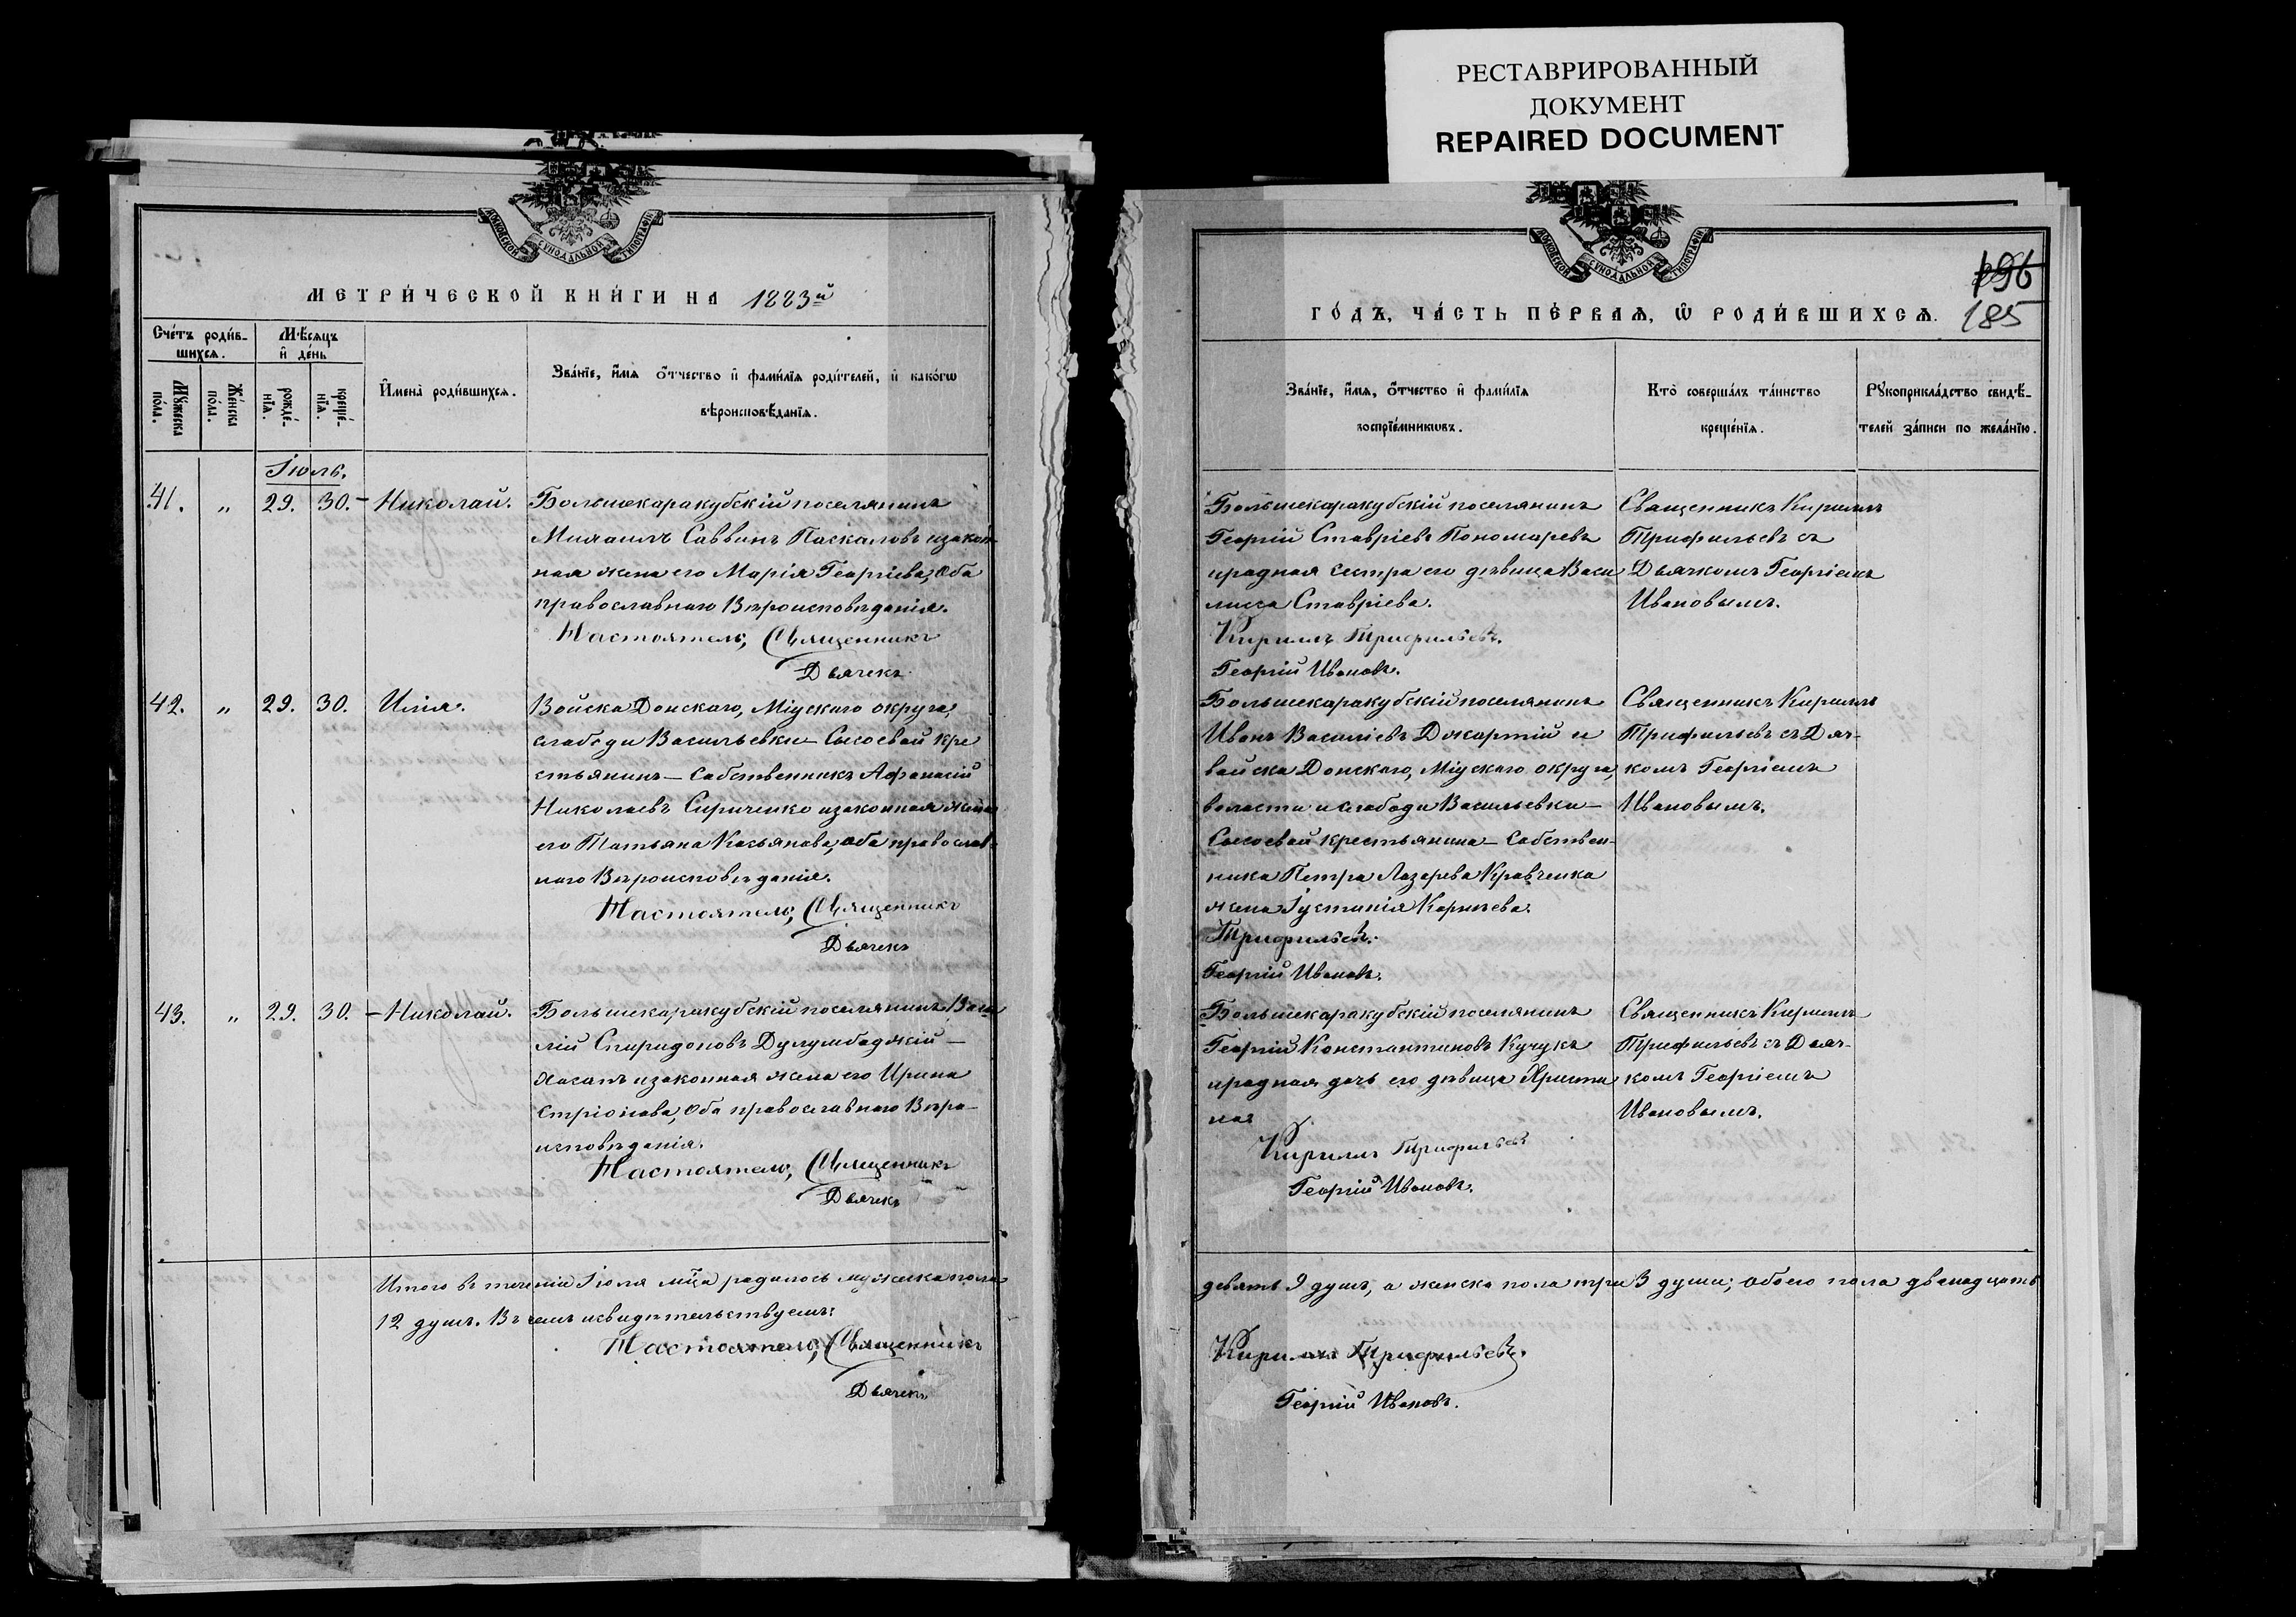 РЕСТАВРИРОВАННЫЙ
ДОКУМЕНТ
REPAIRED DOCUMENT
МОСКОВСКОЙ СУНОДАЛЬНОЙ ТИПОГРАФІИ
МЕТРИ́ЧЕСКОЙ КНИ́ГИ НА 1883й
Сче́тъ роди́в-
шихсѧ.
Мѣ́сѧцъ
и҆ де́нь
Мꙋ́жеска
по́ла.
Же́нска
по́ла.
рожде́-
нїѧ.
креще́-
нїѧ.
И҆мена̀ роди́вшихсѧ.
Зва́нїе, и҆́мѧ ѻ҆́тчество и҆ фами́лїѧ роди́телей, и҆ како́гѡ
вѣроисповѣ́данїѧ.
Іюль.
41. „ 29. 30. – Николай. Большекаракубскій поселянинъ
Михаилъ Саввинъ Паскаловъ и закон-
ная жена его Марія Георгіева, оба
православнаго Вѣроисповѣданія.
Настоятель, Священникъ
Дьячекъ
42. „ 29. 30. Илія. Войска Донскаго, Міускаго округа,
слободи Васильевки–Сысоевой кре
стьянинъ–собственникъ Афанасій
Николаевъ Сириченко и законная жена
его Татьяна Касьянова, оба православ-
наго Вѣроисповѣданія.
Настоятель, Священникъ
Дьячекъ
43. „ 29. 30. – Николай. Большекаракубскій поселянинъ Васи
лій Спиридоновъ Дулумбаджій–
Хасапъ и законная жена его Ирина
оба православнаго Вѣро-
исповѣданія.
Настоятель, Священникъ
Дьячекъ
Итого въ теченіи Іюля мѣца родилось мужеска пола
12 душъ. Въ чемъ и свидѣтельствуемъ:
Настоятель, Священникъ
Дьячекъ
МОСКОВСКОЙ СУНОДАЛЬНОЙ ТИПОГРАФІИ
196
185
ГО́ДЪ, ЧА́СТЬ ПЕ́РВАѦ, Ѡ҆ РОДИ́ВШИХСѦ.
Зва́нїе, и҆́мѧ, ѻ҆́тчество и҆ фами́лїѧ
воспрїе́мникѡвъ.
Кто̀ соверша́лъ та́инство
креще́нїѧ.
Рꙋкоприкла́дство свидѣ́-
телей за́писи по жела́нїю.
Большекаракубскій поселянинъ
Георгій Ставріевъ Пономаревъ
и родная сестра его дѣвица Васи
лисса Ставріева.
Кириллъ Трифильевъ.
Георгій Ивановъ.
Священникъ Кириллъ
Трифильевъ съ
Дьячкомъ Георгіемъ
Ивановымъ.
Большекаракубскій поселянинъ
Иванъ Василіевъ Джартій и
войска Донскаго, Міускаго округа,
волости и слободи Васильевки–
Сысоевой крестьянина–собствен-
ника Петра Лазарева Кравченка
жена Іустинія Карпѣева.
Трифильевъ.
Георгій Ивановъ.
Священникъ Кириллъ
Трифильевъ съ Дьяч-
комъ Георгіемъ
Ивановымъ.
Большекаракубскій поселянинъ
Георгій Константиновъ Кучукъ
и родная дочь его дѣвица Христи
ная
Кириллъ Трифильевъ
Георгій Ивановъ.
Священникъ Кириллъ
Трифильевъ съ Дьяч-
комъ Георгіемъ
Ивановымъ.
девять 9 душъ, а женска пола три 3 души; обоего пола двенадцать
Кириллъ Трифильевъ.
Георгій Ивановъ.